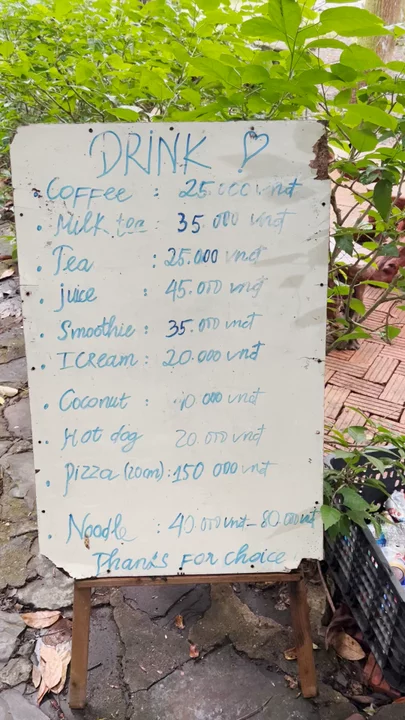 DRINK ♡
. COFFEE : 25.000 vnđ
. Milk tea : 35.000 vnđ
. Tea : 25.000 vnđ
. juice : 45.000 vnđ
. Smoothie : 35.000 vnđ
. ICream : 20.000 vnđ
. Coconut : 000 vnđ
. Hot dog 20.000 vnđ
. pizza (20cm) : 150 000 vnđ
. Noodle : 40.000 vnđ - 80 000 vnđ
Thanks For choice